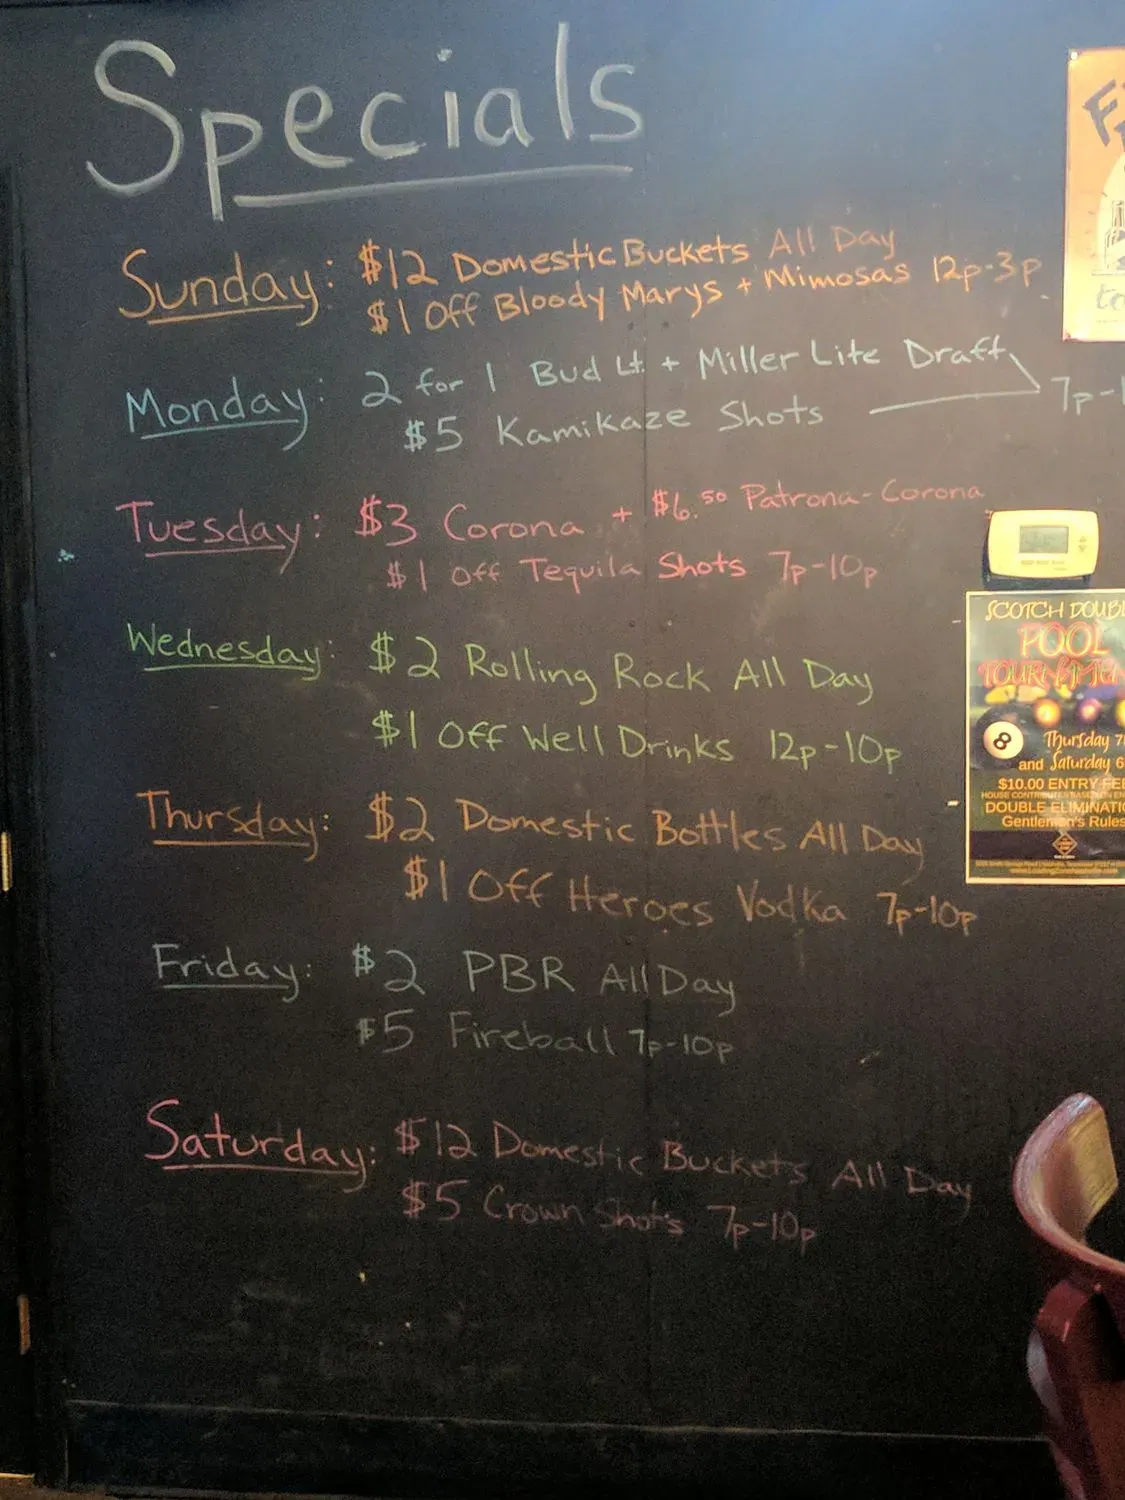 Specials
Sunday: $12 Domestic Buckets All Day
$1 Off Bloody Marys + Mimosas 12p-3p
Monday: 2 for 1 Bud Lt. + Miller Lite Draft
$5 Kamikaze Shots 7p-1
Tuesday: $3 Corona + $6.50 Patrona-Corona
$1 Off Tequila Shots 7p-10p
Wednesday: $2 Rolling Rock All Day
$1 Off Well Drinks 12p-10p
Thursday: $2 Domestic Bottles All Day
$1 Off Heroes Vodka 7p-10p
Friday: $2 PBR All Day
$5 Fireball 7p-10p
Saturday: $12 Domestic Buckets All Day
$5 Crown Shots 7p-10p
SCOTCH DOUB
POOL
TOURNAMEN
8
Thursday 7
and Saturday 6
$10.00 ENTRY FEE
DOUBLE ELIMINATIO
Gentlemen's Rules